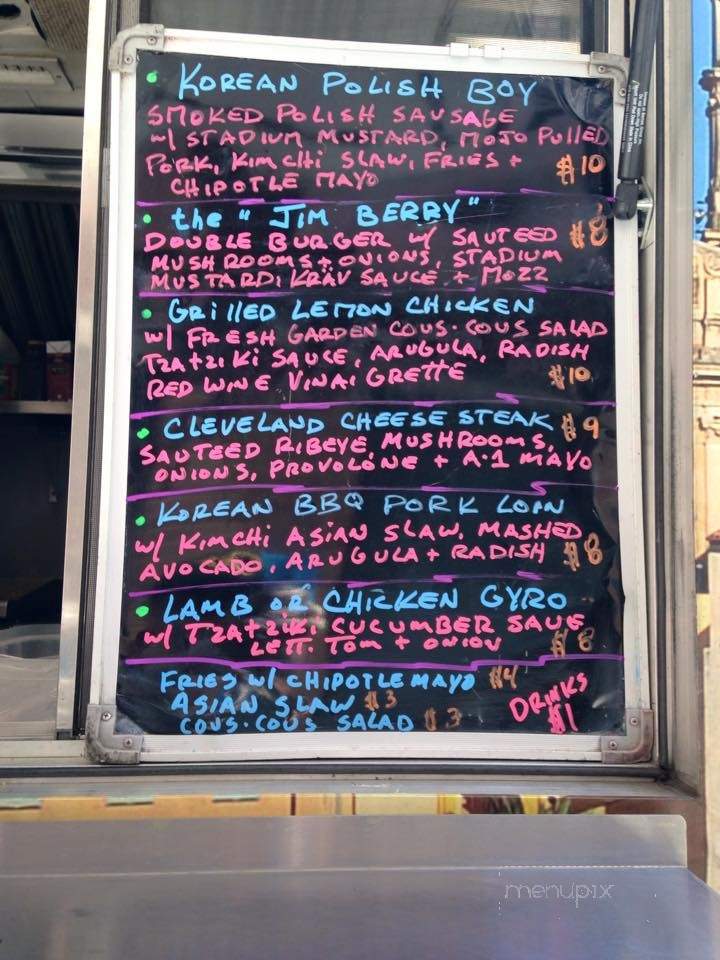 KOREAN POLISH BOY
SMOKED POLISH SAUSAGE
w/ STADIUM MUSTARD, MOJO PULLED
PORK, KIMCHI SLAW, FRIES + $10
CHIPOTLE MAYO
the "JIM BERRY" $8
DOUBLE BURGER w/ SAUTEED
MUSHROOMS + ONIONS, STADIUM
MUSTARD, KRÄV SAUCE + MOZZ
GRILLED LEMON CHICKEN
w/ FRESH GARDEN COUS·COUS SALAD
TZATZIKI SAUCE, ARUGULA, RADISH
RED WINE VINAIGRETTE $10
CLEVELAND CHEESE STEAK $9
SAUTEED RIBEYE MUSHROOMS,
ONIONS, PROVOLONE + A·1 MAYO
KOREAN BBQ PORK LOIN
w/ KIMCHI ASIAN SLAW, MASHED
AVOCADO, ARUGULA + RADISH $8
LAMB OR CHICKEN GYRO
w/ TZATZIKI CUCUMBER SAUE
LETT. TOM + ONION $8
FRIES w/ CHIPOTLE MAYO $4
ASIAN SLAW $3
COUS·COUS SALAD $3
DRINKS
$1
menupix